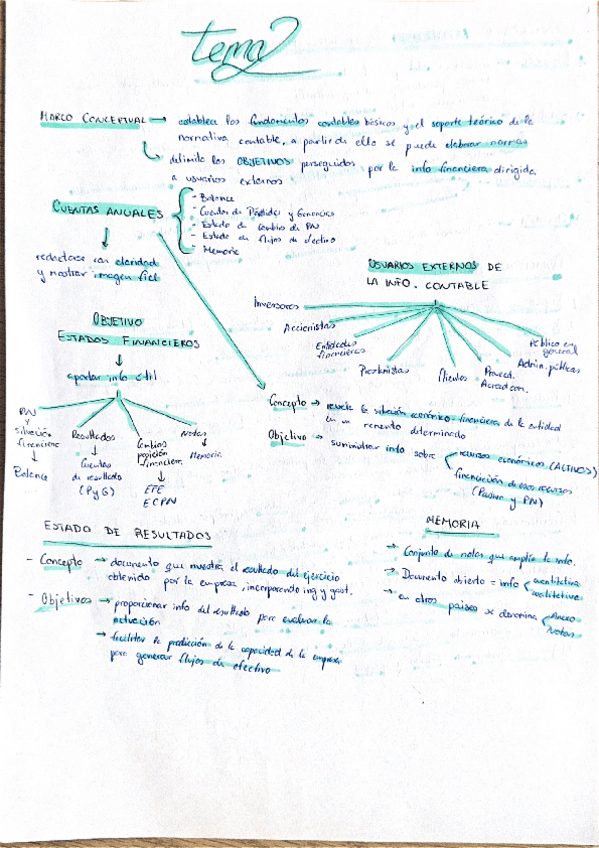 tema 2
MARCO CONCEPTUAL → establece los fundamentos contables básicos y el soporte teórico de la
normativa contable, a partir de ello se puede elaborar normas
delimita los OBJETIVOS perseguidos por la info financiera dirigida
a usuarios externos
CUENTAS ANUALES
- Balance
- Cuentas de Pérdidas y Ganancias
- Estado de cambio de PN
- Estado de flujos de efectivo
- Memoria
redactarse con claridad
y mostrar imagen fiel
USUARIOS EXTERNOS DE
LA INFO. CONTABLE
Inversores
Accionistas
Entidades
financieras
Prestamistas
Clientes
Proveed.
Acreedores
Admin. públicas
Público en
general
OBJETIVO
ESTADOS FINANCIEROS
aportar info útil
PN
y
situación
financiera
Balance
Resultados
Cuentas
de resultado
(PyG)
Cambios
posición
financiera
EFE
ECPN
Notas
Memoria
Concepto → revela la situación económico-financiera de la entidad
en un momento determinado
Objetivo → suministrar info sobre
recursos económicos (ACTIVOS)
financiación de esos recursos
(Pasivo y PN)
ESTADO DE RESULTADOS
- Concepto → documento que muestra el resultado del ejercicio
obtenido por la empresa, incorporando ing y gast.
- Objetivos → proporcionar info del resultado para evaluar la
actuación
→ facilitar la predicción de la capacidad de la empresa
para generar flujos de efectivo
MEMORIA
→ Conjunto de notas que amplía la info.
→ Documento abierto = info
cuantitativa
cualitativa
→ en otros países se denomina
Anexo
Notas